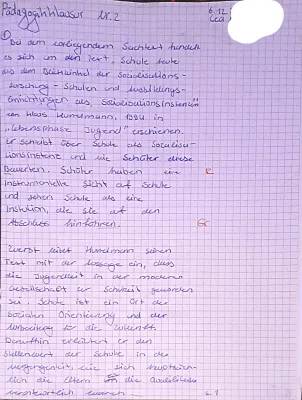 Pädagogikklausur Nr. 2
6.12
Bei dem vorliegendem Sachtext handelt
es sich um den Text „Schule heute
aus dem Blickwinkel der Sozialisations-
forschung - Schulen und Ausbildungs-
einrichtungen als Sozialisationsinstanzen"
von Klaus Hurrelmann, 1994 in
„Lebensphase Jugend" erschienen.
Er schreibt über Schule als Sozialisa-
tionsinstanz und wie Schüler diese
Bewerten. Schüler haben eine
Instrumentelle Sicht auf Schule
und sehen Schule als eine
die sie auf den
Abschluss hinführen.
Gr
Zuerst leitet Hurrelmann seinen
Text mit der Aussage ein, dass
die Jugendzeit in der modernen
Gesellschaft zur Schulzeit geworden
sei. Schule ist ein Ort der
sozialen Orientierung und der
Vorbereitung für die Zukunft.
Daraufhin erläutert er den
Stellenwert der Schule in der
Vergangenheit, wie sich
lich die Eltern die
verantwortlich waren.